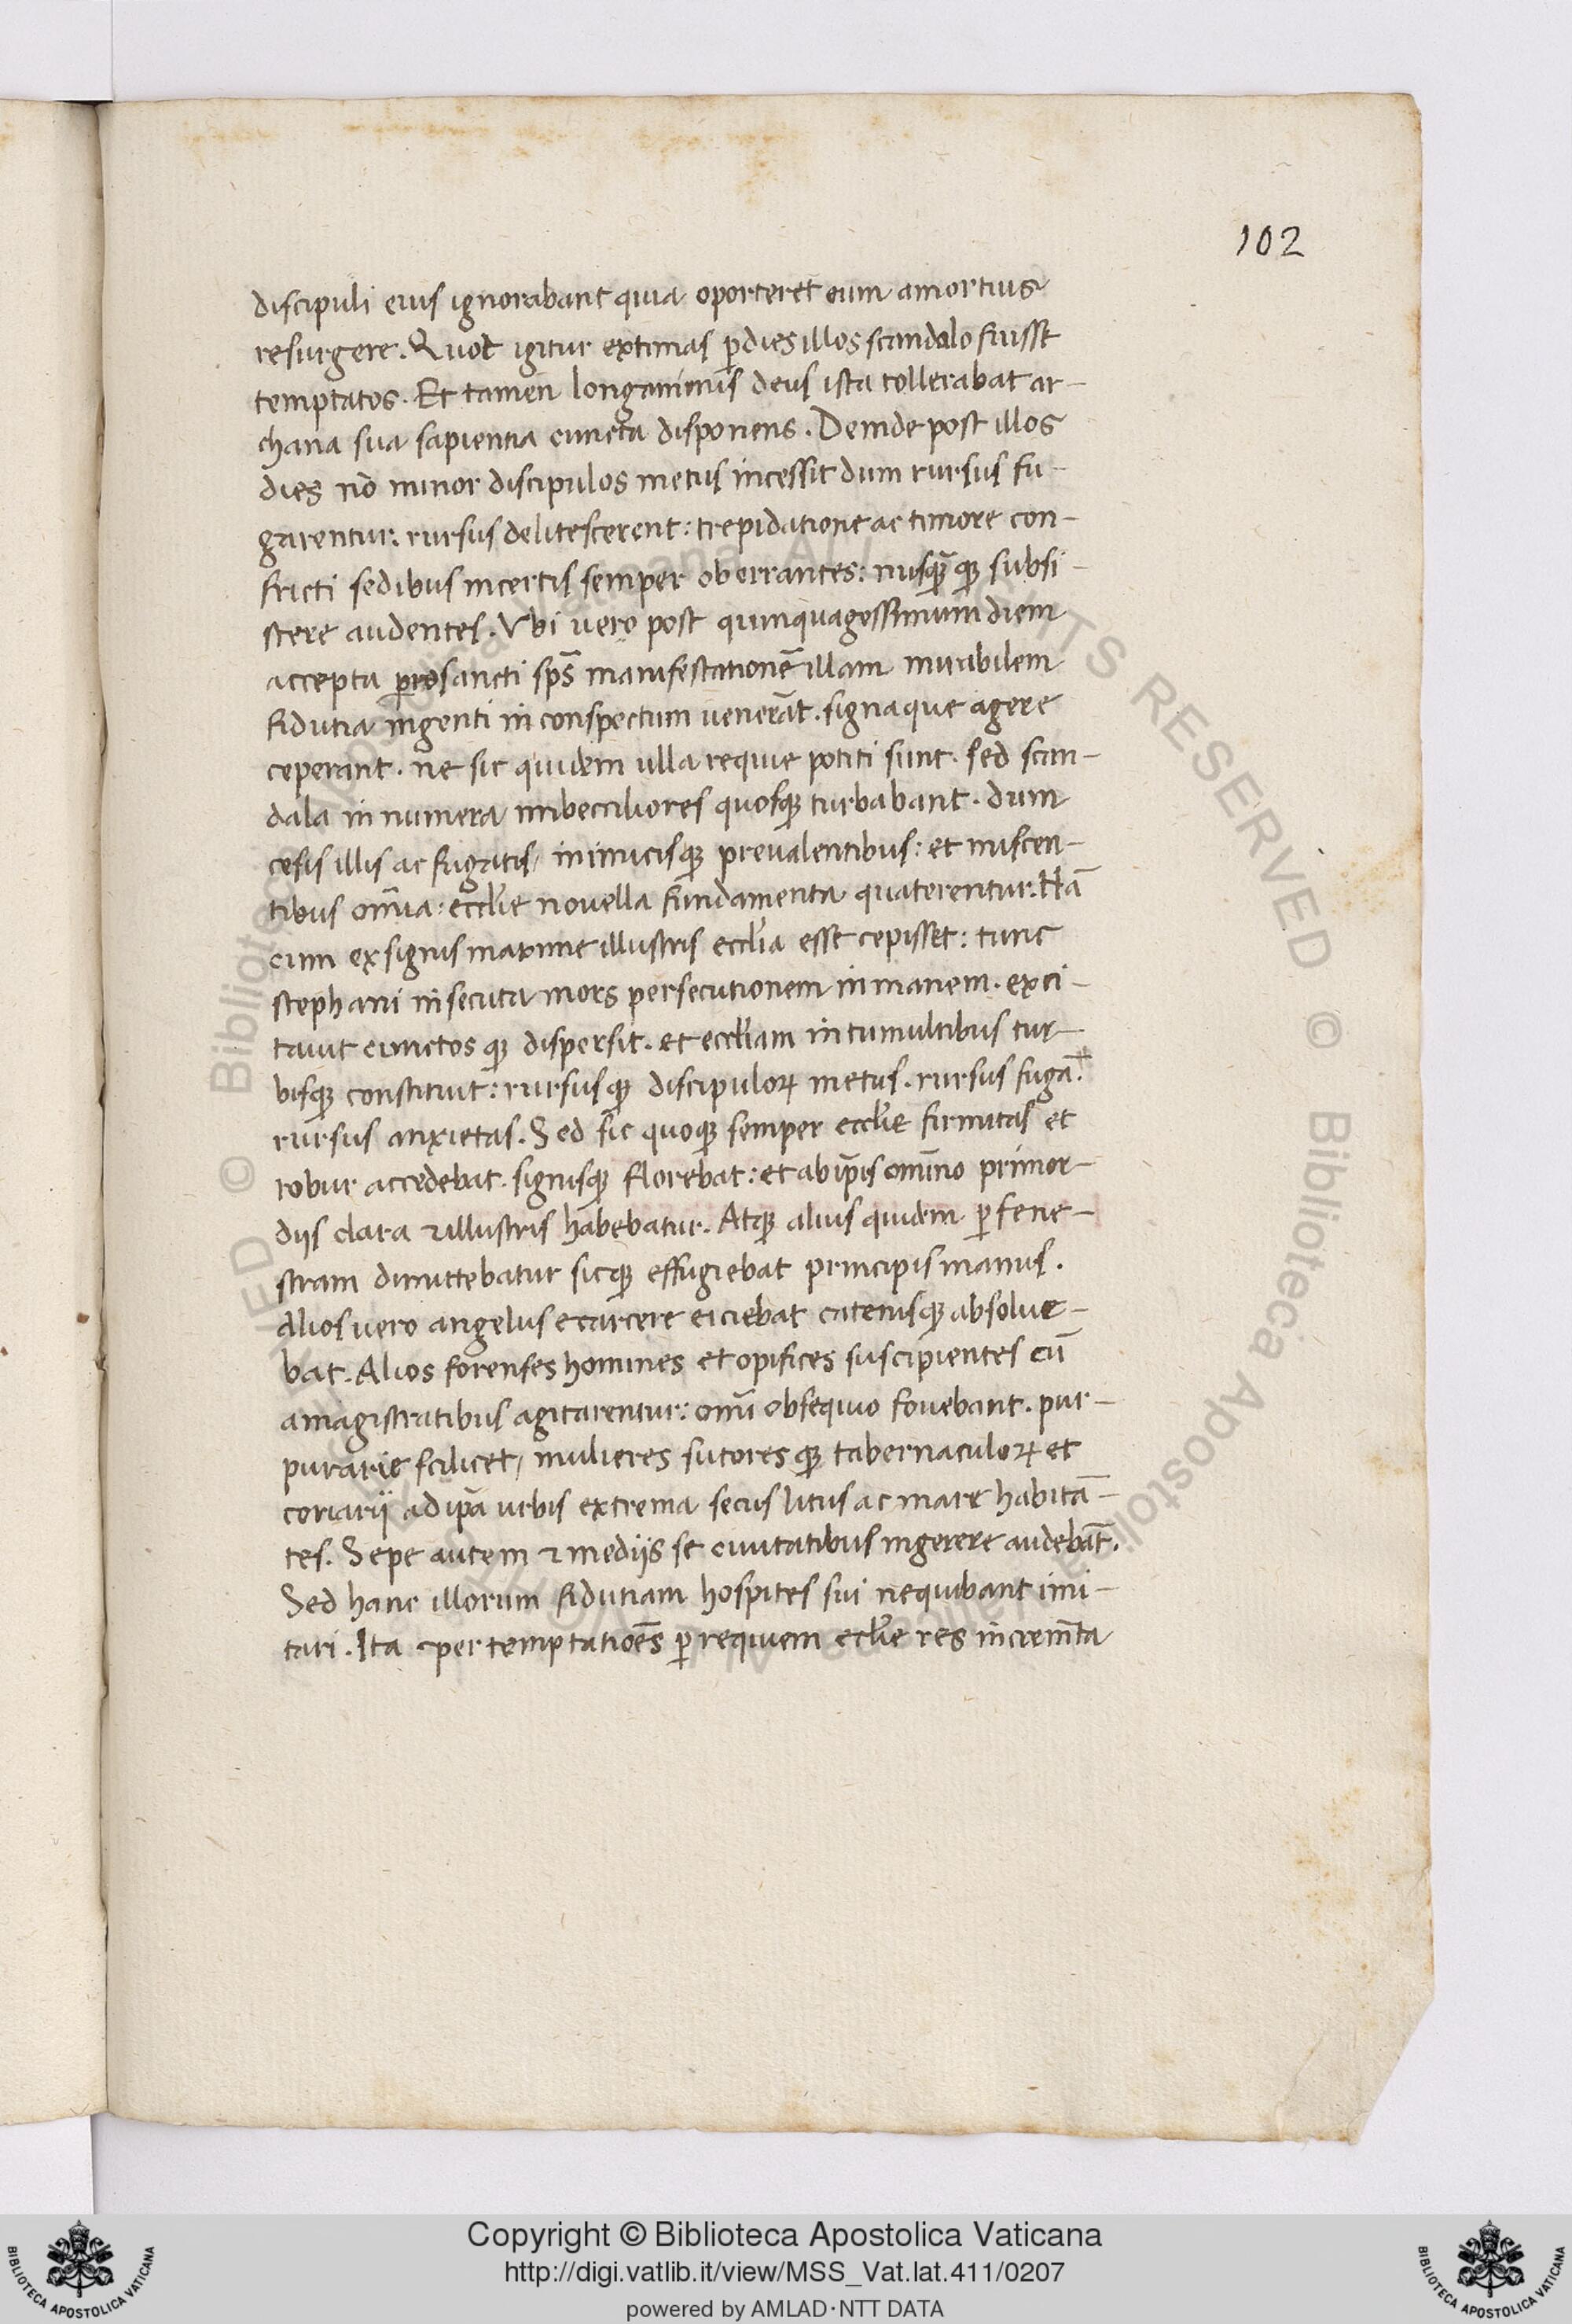 102
discipuli eius ignorabant quia oporteret eum amortuis
resurgere. Quot igitur extimas ꝑdies illos scandalo fuisse
temptatos. Et tamen longanimis deus ista tollerabat ar-
chana sua sapientia cuncta disponens. Deinde post illos
dies nō minor discipulos metus incessit dum rursus fu-
garentur: rursus delitescerent: trepidatione ac timore con-
fricti sedibus incertis semper oberrantes: nusqᷓ qꝫ subsi-
stere audentes. Vbi uero post quinquagessimum diem
accepta sancti sp̄s manifestationē illam mirabilem
fidutia ingenti in conspectum uenerāt. signaque agere
ceperant. ne sic quidem ulla requie potiti sunt. sed scan-
dala innumera imbecciliores quosqꝫ turbabant. dum
cesis illis ac fugatis, inimicisqꝫ preualentibus: et miscen-
tibus om̄ia: eccl̄ie nouella fundamenta quaterentur. Nā
cum ex signis maxime illustris eccl̄ia esse cepisset: tunc
stephani insecuta mors persecutionem inmanem. exci-
tauit cunctos qꝫ dispersit. et eccl̄iam in tumultibus tur-
bisqꝫ constituit: rursusqꝫ discipuloꝝ metus. rursus fuga.
rursus anxietas. Sed sic quoqꝫ semper eccl̄ie firmitas et
robur accedebat. signisqꝫ florebat: et ab ip̄is omīno primor-
diis clara ⁊ illustris habebatur. Atqꝫ alius quidem ꝑ fene-
stram dimittebatur sicqꝫ effugiebat principis manus.
Alios uero angelus e carcere eiciebat catenisqꝫ absolue-
bat. Alios forenses homines et opifices suscipientes cū
amagistratibus agitarentur: om̄i obsequio fouebant. pur-
purarie scilicet, mulieres sutores qꝫ tabernaculoꝝ et
coriarii ad ip̄a urbis extrema secus litus ac mare habitā-
tes. Sepe autem ⁊ mediis se ciuitatibus ingerere audebāt.
Sed hanc illorum fidutiam hospites sui nequibant imi-
tari. Ita ⁊ per temptatioēs ꝑ requiem eccl̄ie res incremēta
Copyright © Biblioteca Apostolica Vaticana
http://digi.vatlib.it/view/MSS_Vat.lat.411/0207
powered by AMLAD·NTT DATA
BIBLIOTECA APOSTOLICA VATICANA
BIBLIOTECA APOSTOLICA VATICANA